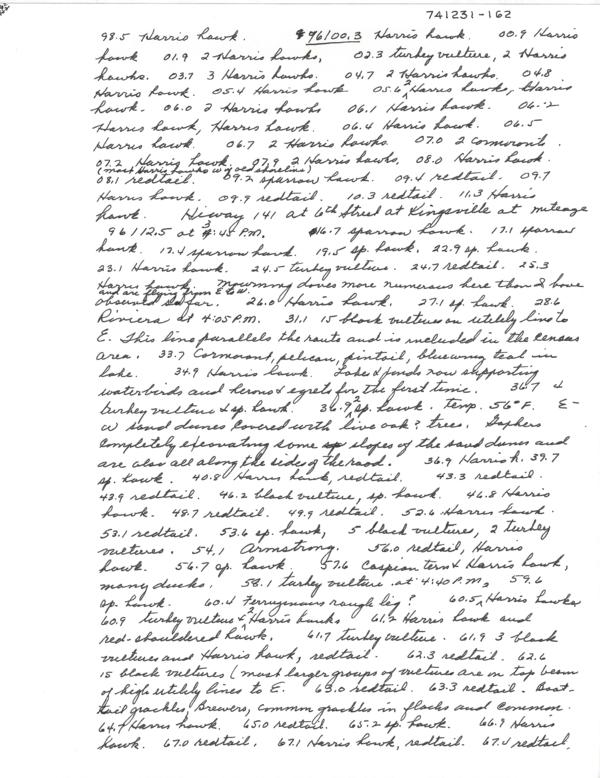 741231-162
98.5 Harris hawk. 96100.3 Harris hawk. 00.9 Harris
hawk 01.9 2 Harris hawks, 02.3 turkey vulture, 2 Harris
hawks. 03.7 3 Harris hawks. 04.7 2 Harris hawks. 04.8
Harris hawk. 05.4 Harris hawk 05.6 2 Harris hawks, Harris
hawk. 06.0 2 Harris hawks 06.1 Harris hawk. 06.2
Harris hawk, Harris hawk. 06.4 Harris hawk. 06.5
Harris hawk. 06.7 2 Harris hawks. 07.0 2 cormorants.
07.2 Harris hawk. 07.9 2 Harris hawks. 08.0 Harris hawk.
(most Harris hawks w of old shoreline)
08.1 redtail. 09.2 sparrow hawk. 09.4 redtail. 09.7
Harris hawk. 09.9 redtail. 10.3 redtail. 11.3 Harris
hawk. Hiway 141 at 6th Street at Kingsville at mileage
96112.5 at 3:45 P.M. 16.7 sparrow hawk. 17.1 sparrow
hawk. 17.4 sparrow hawk. 19.5 sp. hawk. 22.9 sp. hawk.
23.1 Harris hawk. 24.5 turkey vulture. 24.7 redtail. 25.3
Harris hawk. Mourning doves more numerous here than I have
and are flying from E to W.
observed so far. 26.0 Harris hawk. 27.1 sp. hawk. 28.6
Riviera at 4:05 P.M. 31.1 15 black vultures on utility line to
E. This line parallels the route and is included in the census
area. 33.7 Cormorant, pelican, pintail, bluewing teal in
lake. 34.9 Harris hawk. Lake & ponds now supporting
waterbirds and herons & egrets for the first time. 36.7 4
turkey vulture & sp. hawk. 36.9 2 sp. hawk. Temp. 56° F. E-
W sand dunes covered with live oak? trees. Gophers
completely excavating some slopes of the sand dunes and
are also all along the sides of the road. 36.9 Harris h. 39.7
sp. hawk. 40.8 Harris hawk, redtail. 43.3 redtail.
43.9 redtail. 46.2 black vulture, sp. hawk. 46.8 Harris
hawk. 48.7 redtail. 49.9 redtail. 52.6 Harris hawk.
53.1 redtail. 53.6 sp. hawk, 5 black vultures, 2 turkey
vultures. 54.1 Armstrong. 56.0 redtail, Harris
hawk. 56.7 sp. hawk. 57.6 Caspian tern & Harris hawk,
many ducks. 58.1 turkey vulture at 4:40 P.M. 59.6
sp. hawk. 60.4 Ferruginous rough leg? 60.5 Harris hawk
60.9 turkey vulture & 2 Harris hawks 61.2 Harris hawk and
red-shouldered hawk. 61.7 turkey vulture. 61.9 3 black
vultures and Harris hawk, redtail. 62.3 redtail. 62.6
15 black vultures (most larger groups of vultures are on top beam
of high utility lines to E. 63.0 redtail. 63.3 redtail. Boat-
tail grackles, Brewers, common grackles in flocks and common.
64.1 Harris hawk. 65.0 redtail. 65.2 sp. hawk. 66.9 Harris
hawk. 67.0 redtail. 67.1 Harris hawk, redtail. 67.4 redtail,